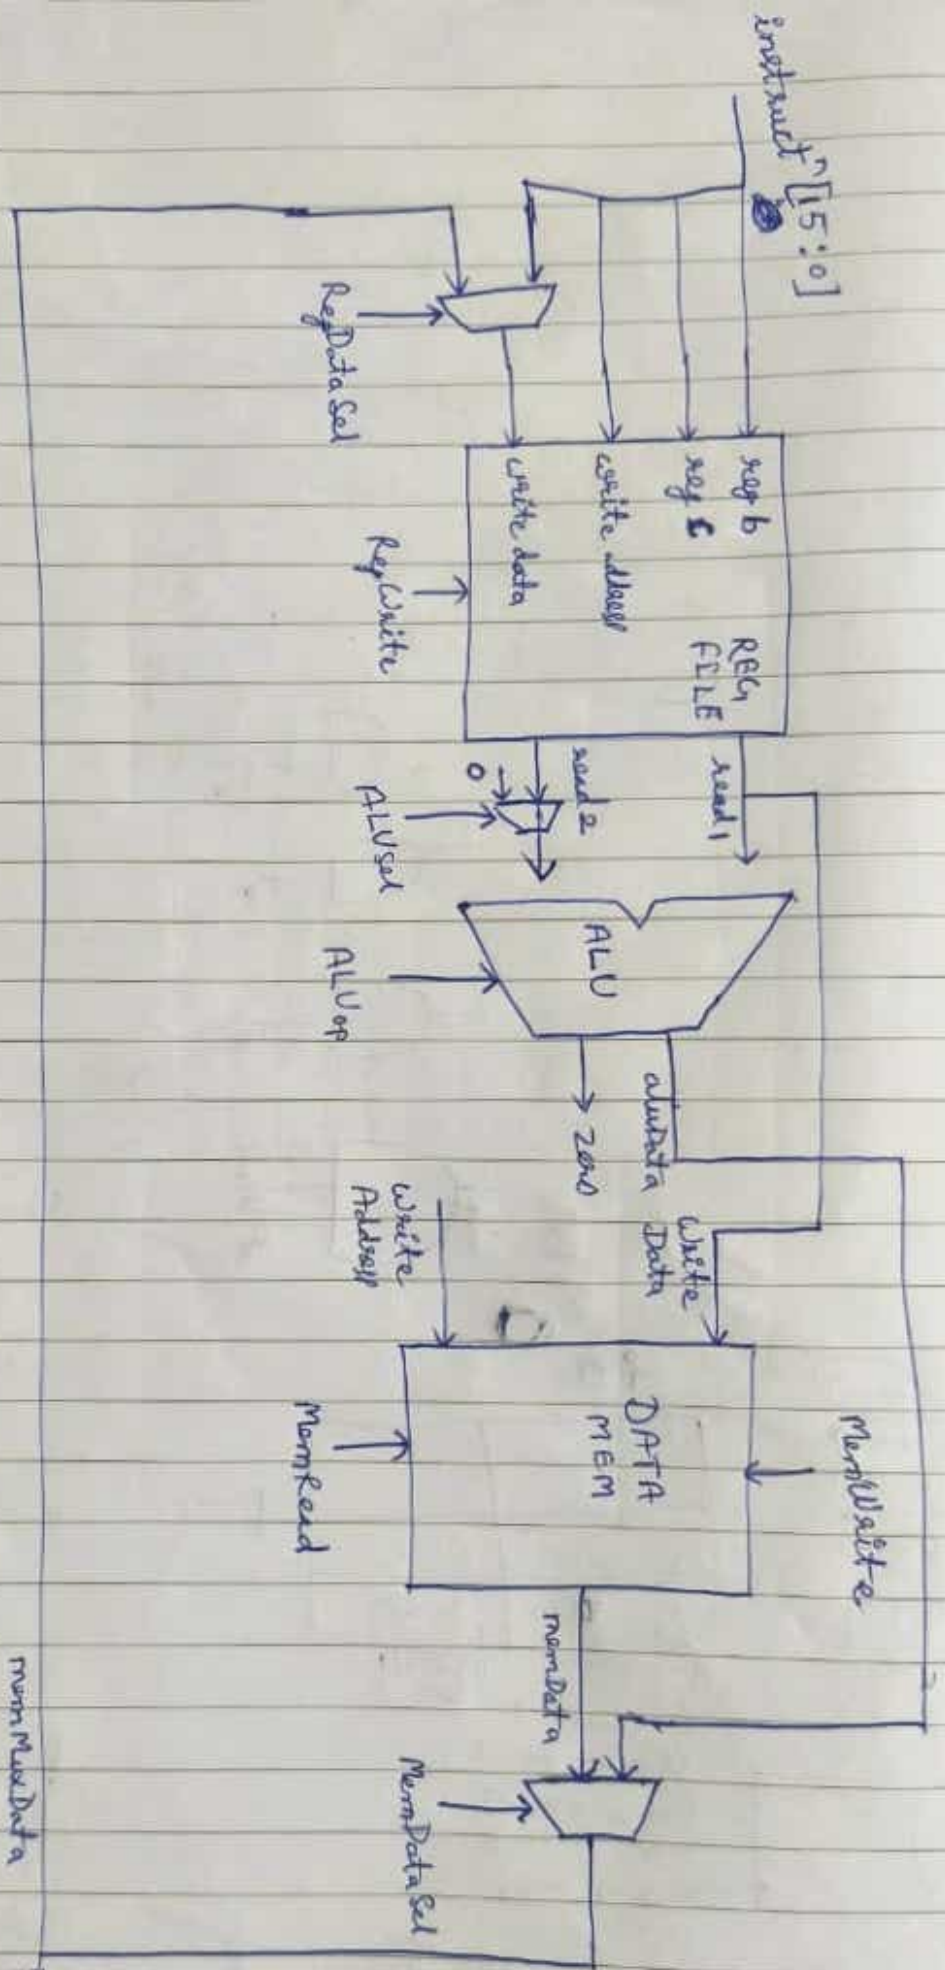 instructⁿ [15:0]
RegDataSel
reg b
reg c
write address
write data
REG
FILE
RegWrite
read1
read2
0
ALUsel
ALU
ALUop
aluData
Zero
Write
Data
Write
Address
DATA
MEM
MemWrite
MemRead
memData
MemDataSel
memMuxData